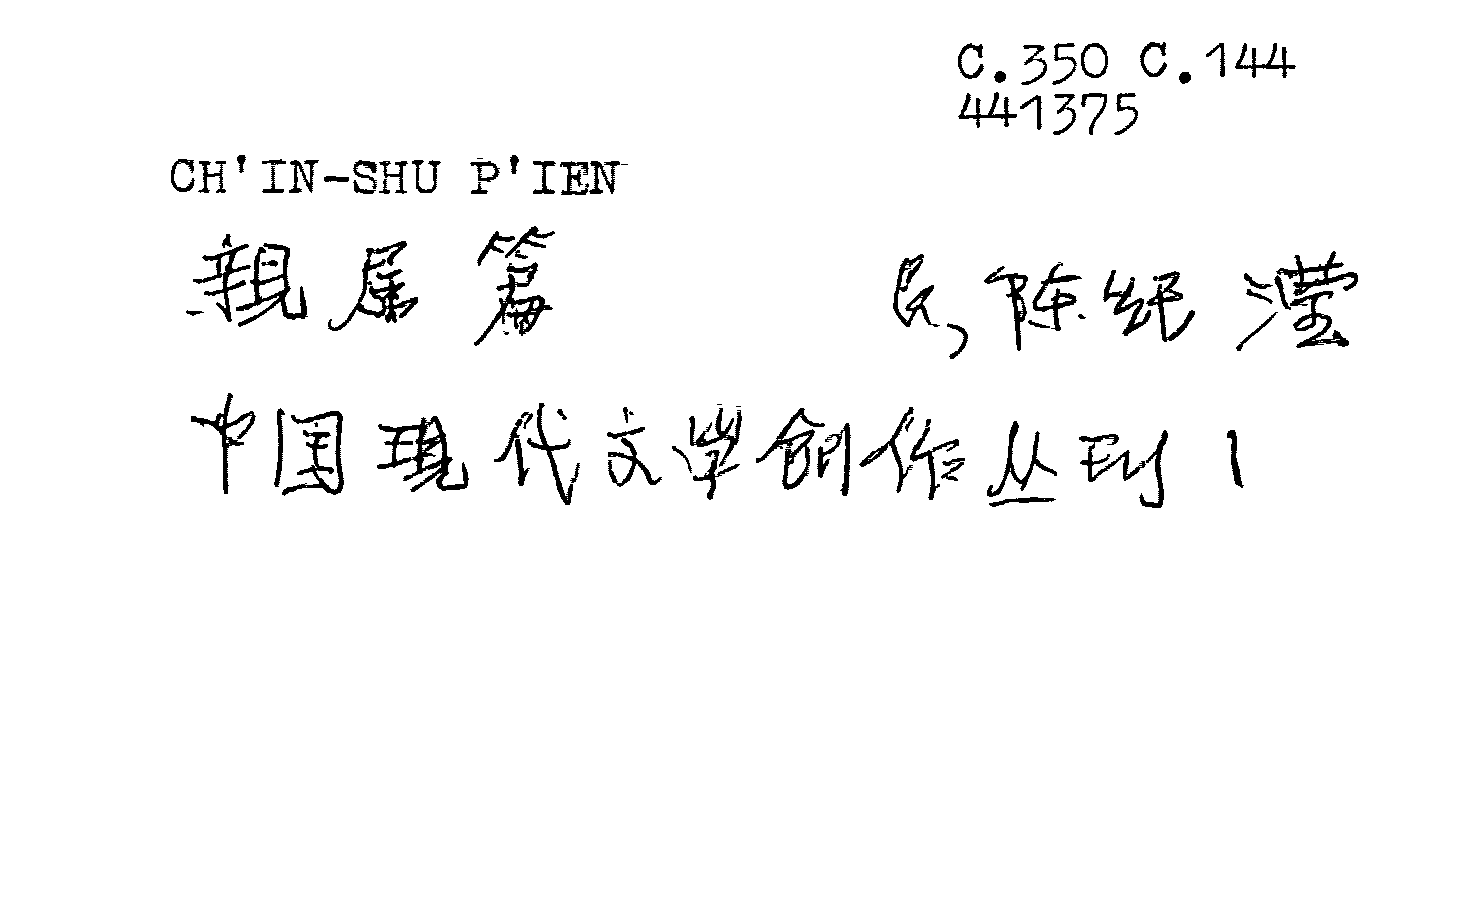 C.350 C.144
441375
CH'IN-SHU P'IEN
親属篇 民, 陈紀瀅
中国現代文学創作丛刊 1